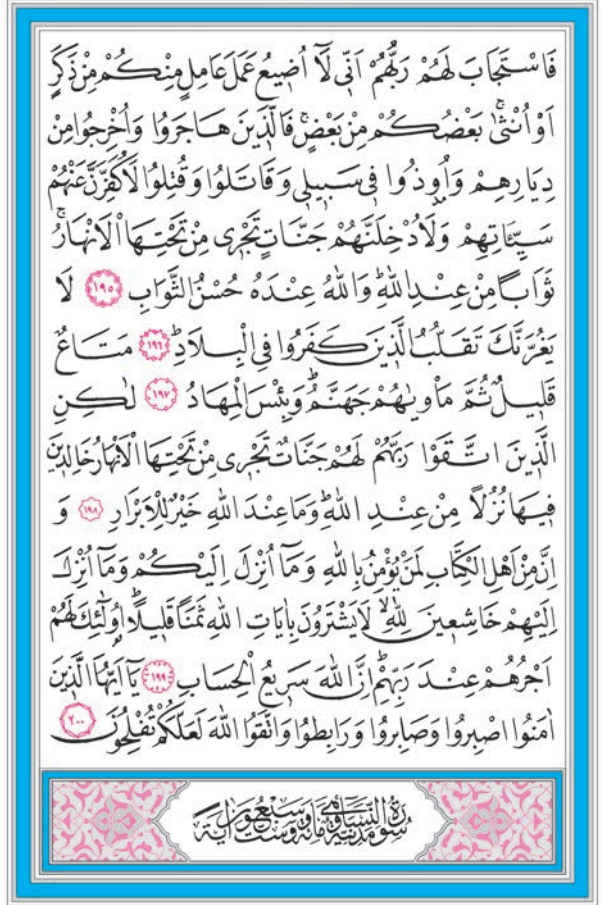 فَاسْتَجَابَ لَهُمْ رَبُّهُمْ اَنّٖى لَٓا اُضٖيعُ عَمَلَ عَامِلٍ مِنْكُمْ مِنْ ذَكَرٍ
اَوْ اُنْثٰىۚ بَعْضُكُمْ مِنْ بَعْضٍۚ فَالَّذٖينَ هَاجَرُوا وَاُخْرِجُوا مِنْ
دِيَارِهِمْ وَاُوذُوا فٖى سَبٖيلٖى وَقَاتَلُوا وَقُتِلُوا لَاُكَفِّرَنَّ عَنْهُمْ
سَيِّـَٔاتِهِمْ وَلَاُدْخِلَنَّهُمْ جَنَّاتٍ تَجْرٖى مِنْ تَحْتِهَا الْاَنْهَارُۚ
ثَوَابًا مِنْ عِنْدِ اللّٰهِؕ وَاللّٰهُ عِنْدَهُ حُسْنُ الثَّوَابِ ﴿١٩٥﴾ لَا
يَغُرَّنَّكَ تَقَلُّبُ الَّذٖينَ كَفَرُوا فِى الْبِلَادِؕ ﴿١٩٦﴾ مَتَاعٌ
قَلٖيلٌ ثُمَّ مَاْوٰيهُمْ جَهَنَّمُؕ وَبِئْسَ الْمِهَادُ ﴿١٩٧﴾ لٰكِنِ
الَّذٖينَ اتَّقَوْا رَبَّهُمْ لَهُمْ جَنَّاتٌ تَجْرٖى مِنْ تَحْتِهَا الْاَنْهَارُ خَالِدٖينَ
فٖيهَا نُزُلًا مِنْ عِنْدِ اللّٰهِؕ وَمَا عِنْدَ اللّٰهِ خَيْرٌ لِلْاَبْرَارِ ﴿١٩٨﴾ وَ
اِنَّ مِنْ اَهْلِ الْكِتَابِ لَمَنْ يُؤْمِنُ بِاللّٰهِ وَمَٓا اُنْزِلَ اِلَيْكُمْ وَمَٓا اُنْزِلَ
اِلَيْهِمْ خَاشِعٖينَ لِلّٰهِۙ لَا يَشْتَرُونَ بِاٰيَاتِ اللّٰهِ ثَمَنًا قَلٖيلًاؕ اُولٰٓئِكَ لَهُمْ
اَجْرُهُمْ عِنْدَ رَبِّهِمْؕ اِنَّ اللّٰهَ سَرٖيعُ الْحِسَابِ ﴿١٩٩﴾ يَٓا اَيُّهَا الَّذٖينَ
اٰمَنُوا اصْبِرُوا وَصَابِرُوا وَرَابِطُوا وَاتَّقُوا اللّٰهَ لَعَلَّكُمْ تُفْلِحُونَ ﴿٢٠٠﴾
سُورَةُ النِّسَاءِ مَدَنِيَّةٌ وَهِيَ مِائَةٌ وَسِتٌّ وَسَبْعُونَ اٰيَةً